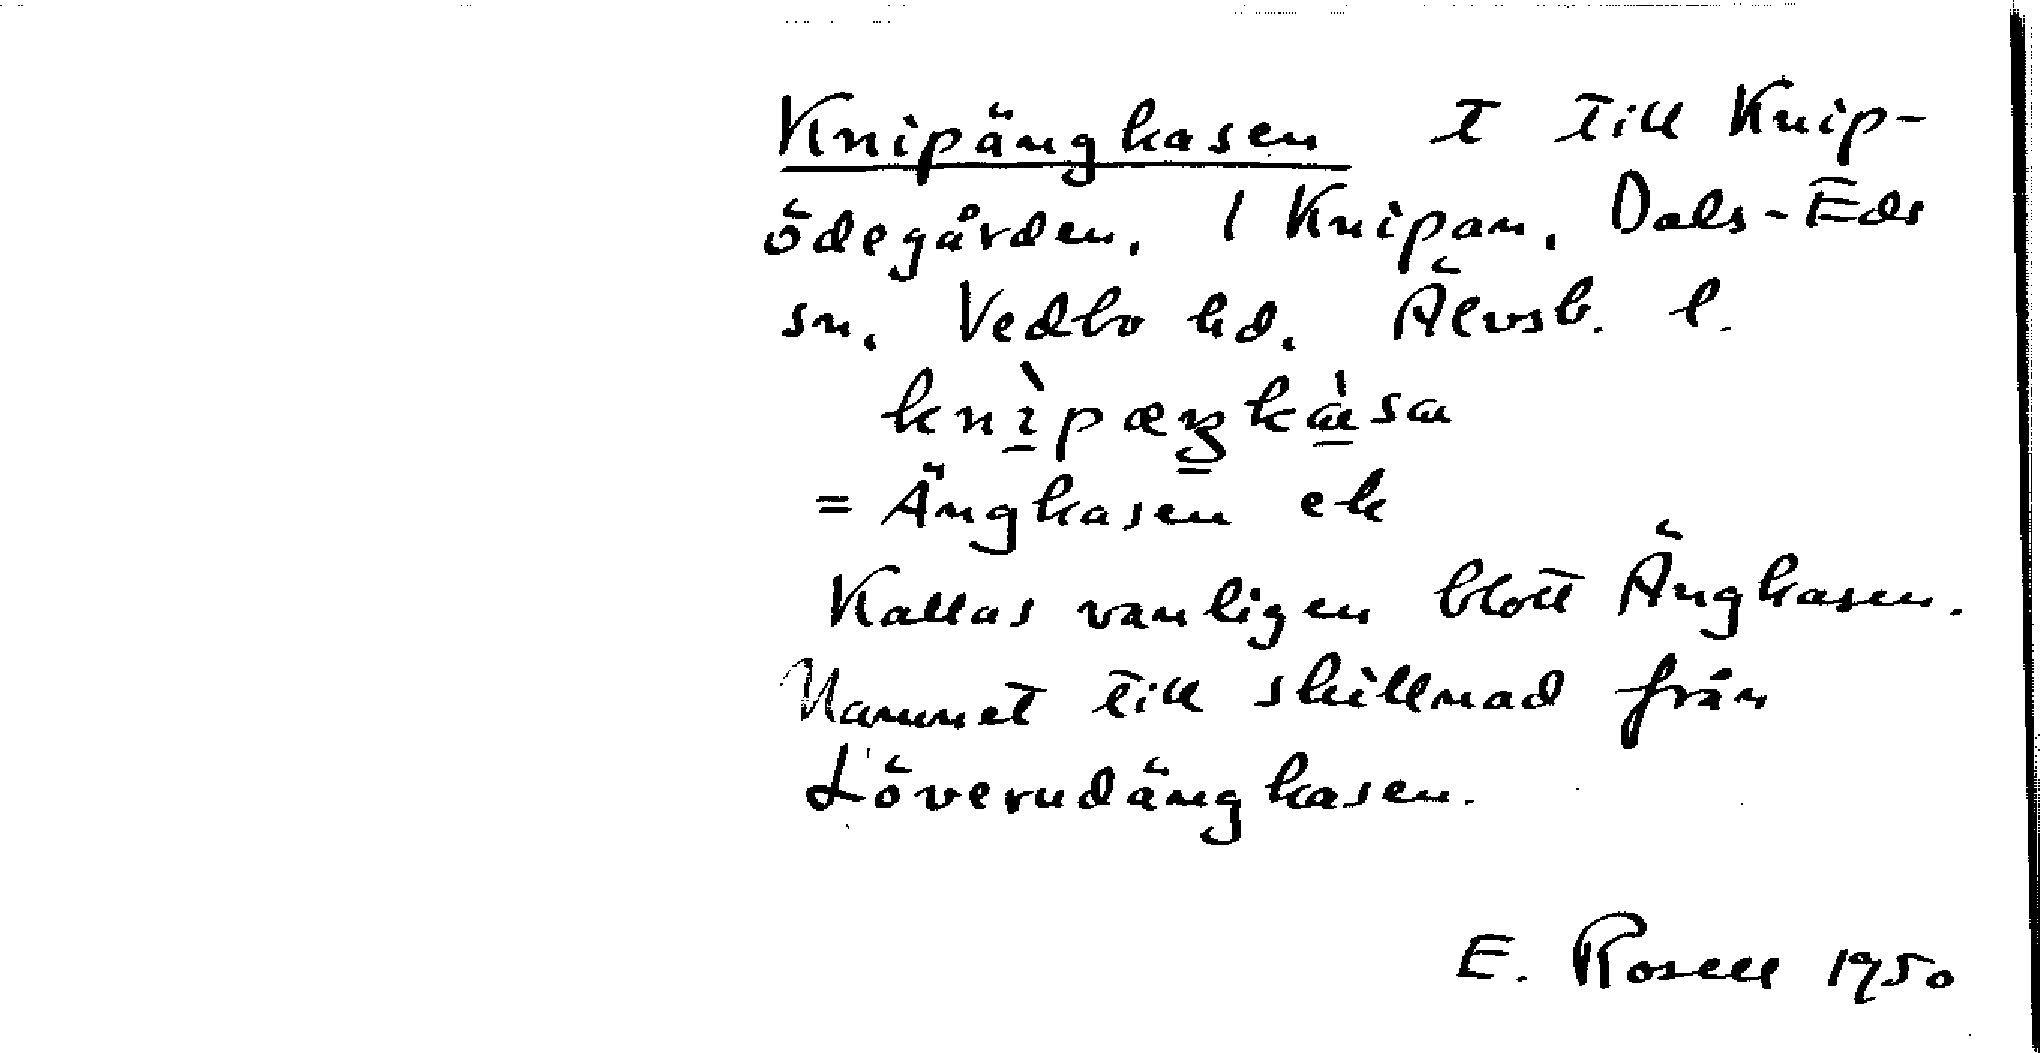 Knipängkasen t till Knip-
ödegården, 1 Knipan, Dals-Eds
sn, Vedbo hd, Älvsb. l.
knìpæŋkàsa
= Ängkasen ek
Kallas vanligen blott Ängkasen.
Namnet till skillnad från
Löverudängkasen.
E. Rosell 1950